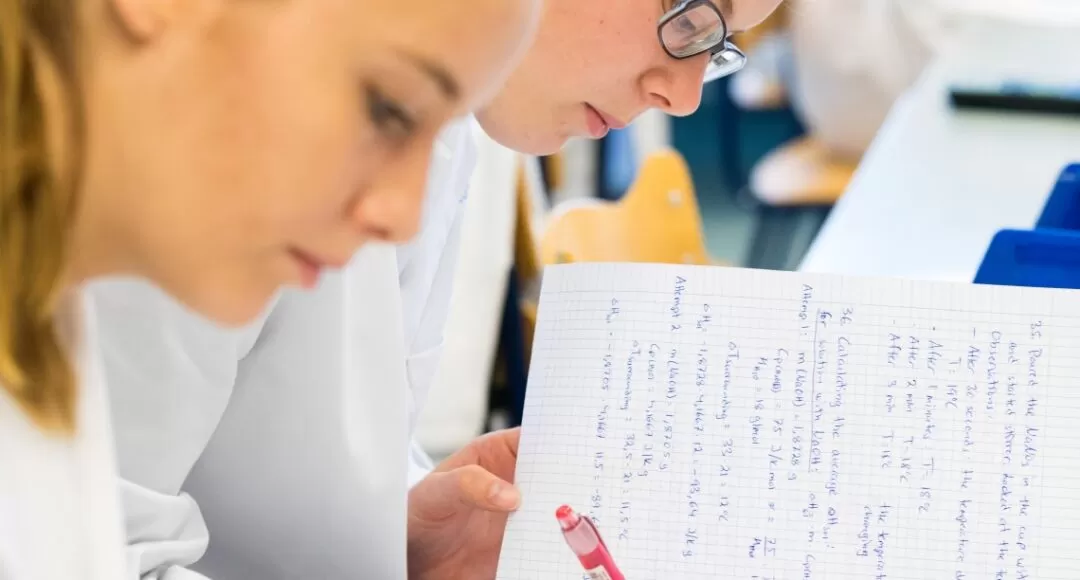 35. Poured the NaNO3 in the cup with
and started stirrer, looked at the te
Observations:
- After 30 seconds: the temperature
T: 19°C
- After 1 minutes T= 18°C
- After 2 min T=18°C
- After 3 min T 18°C the temperat
changing
36. Calculating the average ΔHsol:
for solution with NaOH: ΔH = m Cp
Attempt 1: m(NaOH) = 1,8728 g
= 75 J/k mol = 75
= 18 g/mol
ΔTsurrounding = 33-21 = 12°C
ΔHsol = -1,8728 · 4,1667 · 12 = -93,64 J/kg
Attempt 2 m(NaOH) = 1,8705 g
= 4,1667 J/kg
ΔTsurrounding = 32,5-21 = 11,5°C
ΔHsol = -1,8705 · 4,1667 · 11,5 =